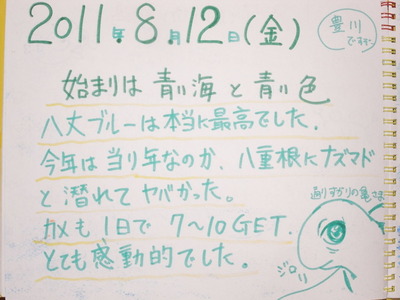 2011年8月12日(金)
豊川
ですっ
始まりは 青い海 と 青い色
八丈ブルーは本当に最高でした.
今年は当り年なのか、八重根にナズマド
と潜れてヤバかった。
カメも1日で 7〜10GET.
とても感動的でした。
通りすがりの亀さま
ジロリ